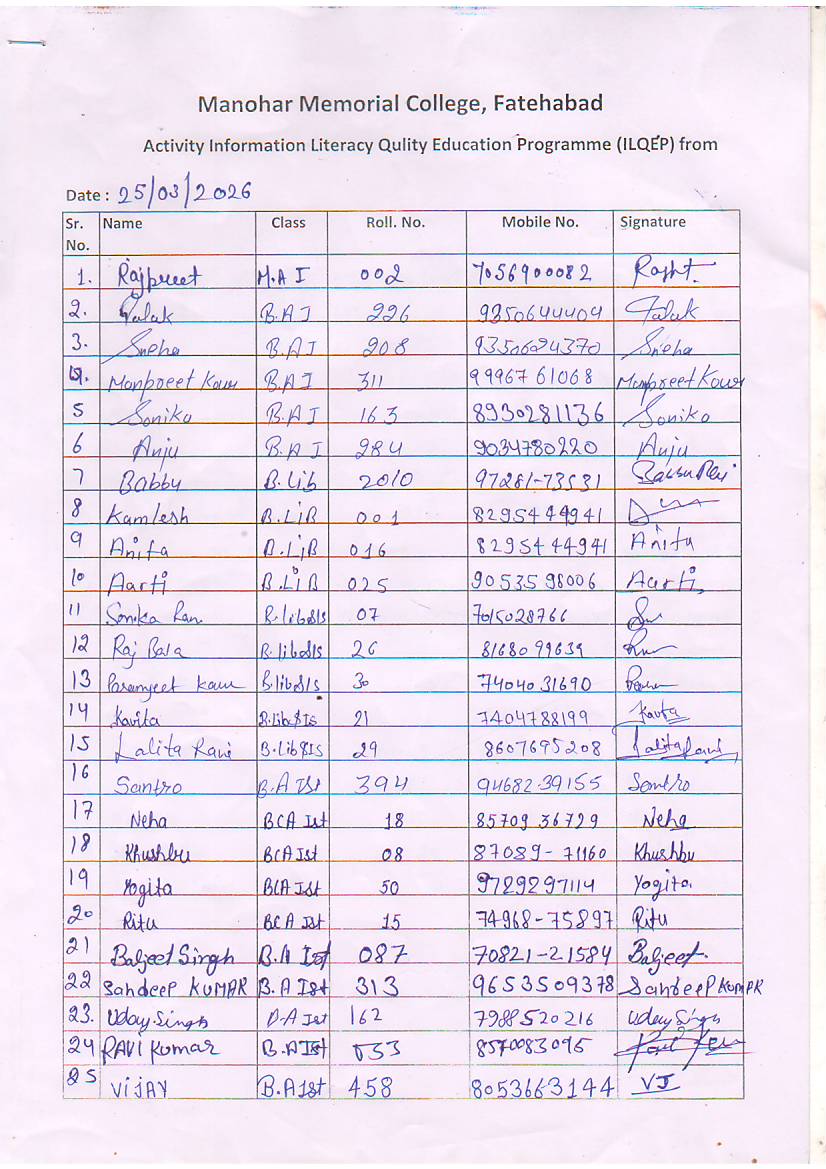 Manohar Memorial College, Fatehabad
Activity Information Literacy Qulity Education Programme (ILQEP) from
Date : 25/03/2026
Sr. No. Name Class Roll. No. Mobile No. Signature
1. Rajpreet M.A I 002 7056900082
2. Palak B.A I 226 9350644404 Palak
3. Sneha B.A I 208 9350624370 Sneha
4. Manpreet Kaur B.A I 311 99967 61068 Manpreet Kaur
5 Soniku B.A I 163 8930281136 Soniko
6 Anju B.A I 284 9034780220 Anju
7 Babby B.Lib 2010 97281-73531
8 Kamlesh B.LiB 001 82954 44941
9 Anita B.LiB 016 82954 44941 Anita
10 Aarti B.LiB 025 90535 98006 Aarti
11 Sonika Rani B.lib&Is 07 7015028766
12 Raj Bala B.lib&Is 26 81680 99639
13 Paramjeet Kaur B.lib&Is 30 74040 31690
14 Kavita B.lib&Is 21 7404788199 Kavita
15 Lalita Rani B.Lib&Is 29 8607695208 Lalita Rani
16 Santro B.A Ist 394 94682 39155 Santro
17 Neha BCA Ist 18 85709 36729 Neha
18 Khushbu BCA Ist 08 87089-71160 Khushbu
19 Yogita BCA Ist 50 9729297114 Yogita
20 Ritu BCA Ist 15 74968-75897 Ritu
21 Baljeet Singh B.A Ist 087 70821-21584 Baljeet
22 Sandeep KUMAR B.A Ist 313 9653509378 Sandeep KUMAR
23. Uday Singh B.A Ist 162 7988520216 Uday Singh
24 RAVI Kumar B.A Ist 033 8570083095
25 VIJAY B.A Ist 458 8053663144 VJ